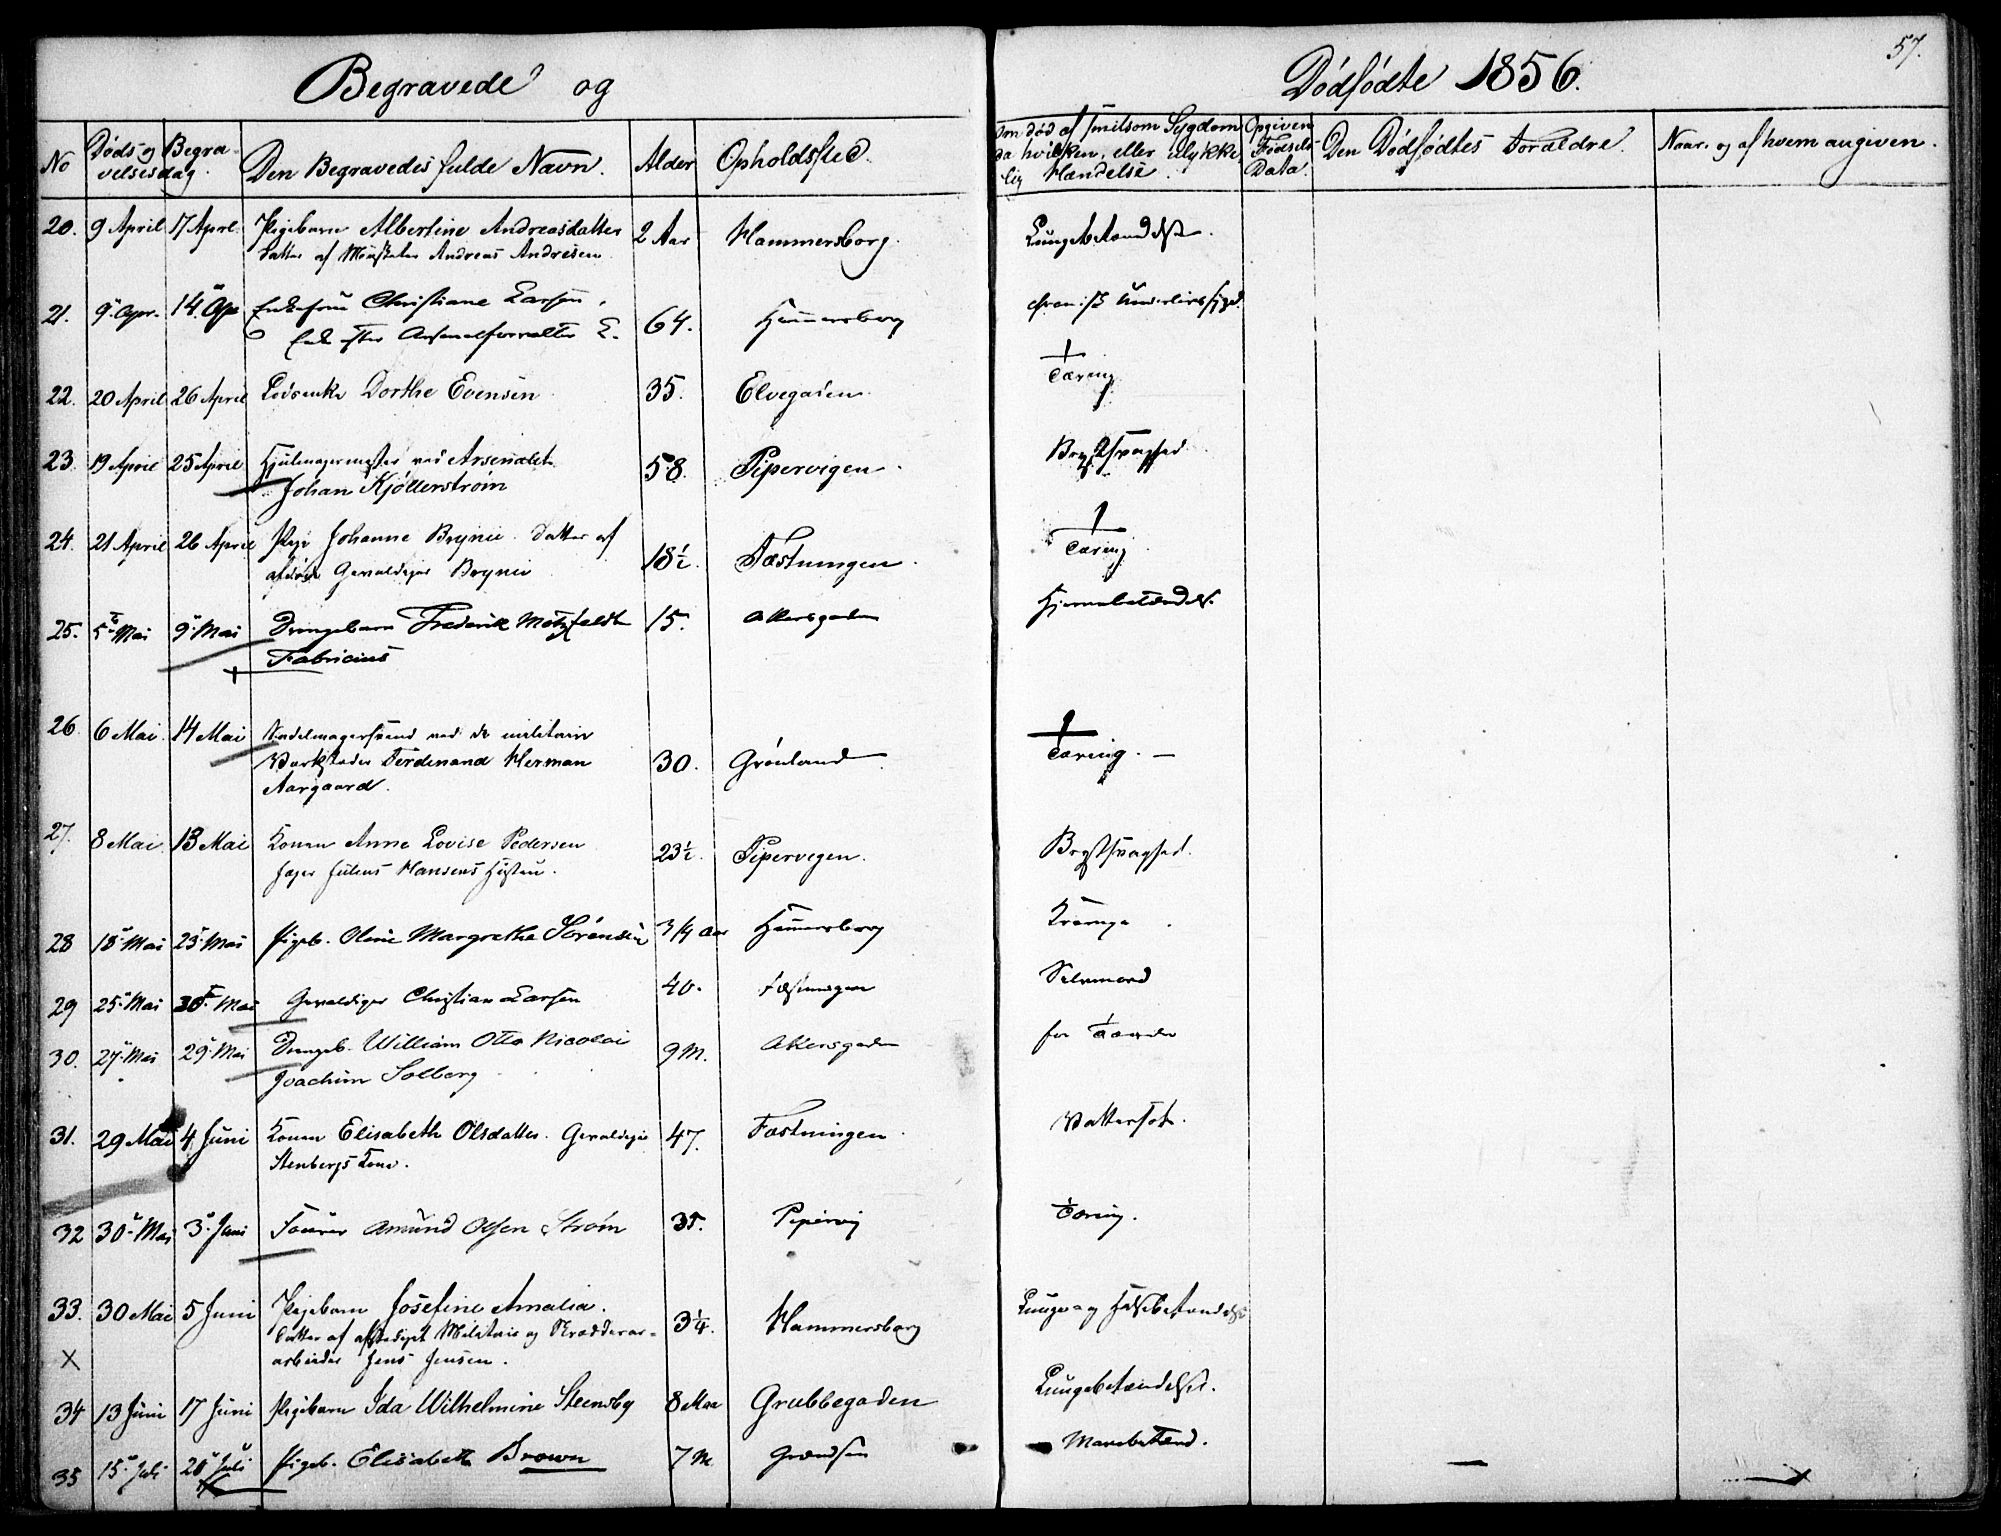 57.
Begravede og Dødfødte 1856.
No Døds- og Begravelsesdag. Den Begravedes fulde Navn. Alder Opholdssted. Om død af smitsom Sygdom da hvilken, eller ulykkelig Hændelse. Opgiven Fødsels Data. Den Dødfødtes Forældre. Naar og af hvem angiven.
20. 9 April 17 Aprl. Pigebarn Albertine Andreasdatter 2 Aar Hammersborg. Lungebetændelse.
Datter af Musketer Andreas Andresen
21. 9. Apr. 14. Ap Enkefru Christiane Larsen, 64. Hammersborg chronisk Underlivssygd.
Enke efter Arsenalforvalter L.
22. 20 April 26 April Løsenke Dorthe Evensen 35. Elvegaden. Tæring
23. 19 April 25 April Hjulmagermester ved Arsenalet 58. Pipervigen. Brystsvaghed
Johan Kjöllerström
24. 21 April 26 April Pige Johanne Brynie Datter af 18½. Fæstningen. Tæring.
afdøde Gevaldiger Brynie
25. 5. Mai 9. Mai Drengebarn Frederik Motzfeldt 15. Akersgaden Hjernebetændelse.
Fabricius
26 6 Mai. 14 Mai Sadelmagersvend ved de militaire
Værksteder Ferdinand Herman 30. Grønland Tæring. —
Aargaard.
27. 8 Mai 13 Mai Konen Anne Lovise Pedersen 23½. Pipervigen. Brystsvaghed.
Jæger Julius Hansens Hustru.
28 18. Mai 23. Mai Pigeb. Oline Margrethe Sörensen 3/4 Aar Hammersborg Krampe
29 25. Mai 30. Mai Gevaldiger Christian Larsen 40. Fæstningen Selvmord
30. 27. Mai 29. Mai Drengeb. William Otto Nicolai 9 M. Akersgaden for Tænder
Joachim Solberg
31. 29 Mai 4 Juni Konen Elisabeth Olsdatter. Gevaldiger 47. Fæstningen. Vattersot.
Stenbergs Kone.
32 30. Mai 3. Juni Fourer Amund Olsen Strøm 35. Pipervig Tæring.
33. 30 Mai 5 Juni Pigebarn Josefine Amalia. 3¼. Hammersborg Lunge- og Halsbetændelse
Datter af afskediget Militair og Skrædderar-
arbeider Jens Jensen.
X
34 13 Juni 17 Juni Pigebarn Ida Wilhelmine Steensby 8 Mdr Grubbegaden Lungebetændelse.
35 15. Juli 20. Juli Pigeb. Elisabeth Brown 7 M Grændsen Mavebetænd.